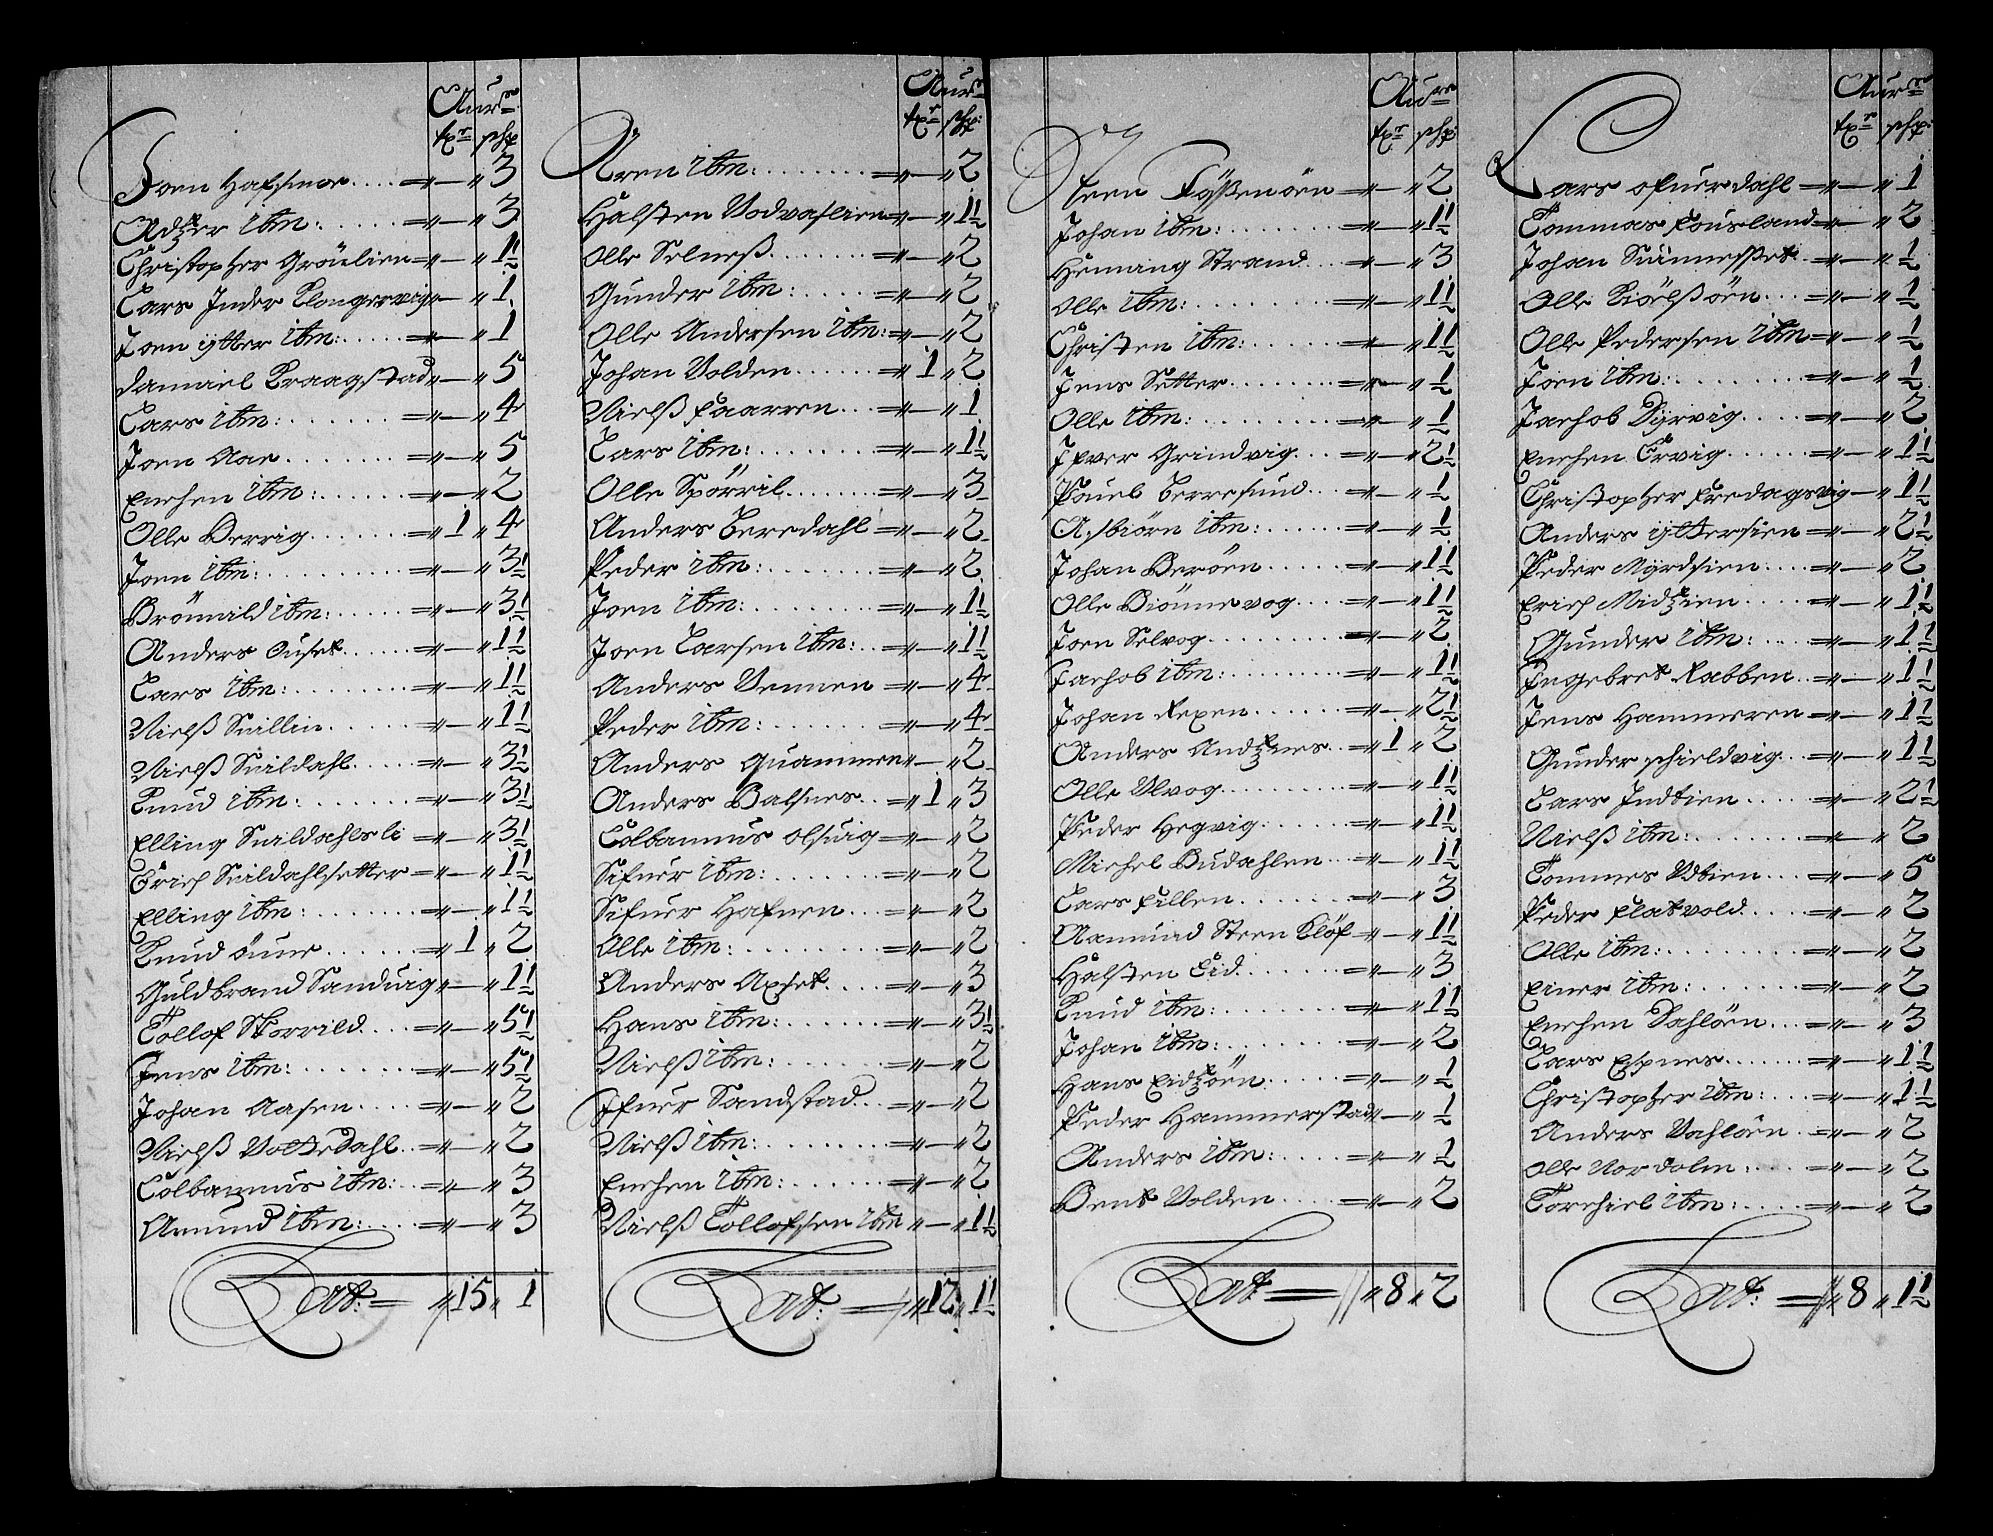 Aur
tp schp
Joen Hafsmoe - 3
Adzer ibm: - 3
Christopher Gröulien - 1½
Lars Inder Klongervig - 1
Joen ytter ibm: - 1
Daniael Kraagstad - 5
Lars ibm: - 4
Joen Aae - 5
Enchen ibm: - 2
Olle Berrig 1 4
Joen ibm: - 3½
Brömald ibm: - 3½
Anders Ouset - 1½
Lars ibm: - 1½
Nielß Snillin - 1½
Nielß Snildahl - 3½
Knud ibm: - 3½
Elling Snildahls li - 3½
Erich Snildahlsetter - 1½
Elling ibm: - 1½
Knud öuue 1 2
Guldbrand Sanduig - 1½
Tollof Skorrild - 5½
Jens ibm: - 5½
Johan Aasen - 2
Nielß Voldedahl - 2
Colbannus ibm: - 3
Amund ibm: - 3
Lat: 15 1
Aur
tp schp:
Aren ibm: - 2
Halsten Vodvaslien - 1½
Olle Selneß - 2
Gunder ibm: - 2
Olle Andersen ibm: - 2
Johan Volden 1 2
Nielß Faarren - 1
Lars ibm: - 1½
Olle Spörril - 3
Anders Beredahl - 2
Peder ibm: - 2
Joen ibm: - 1½
Joen Larsen ibm: - 1½
Anders Vennen - 4
Peder ibm: - 4
Anders Quammen - 2
Anders Balsnes 1 3
Colbannus Olsuig - 2
Sifuer ibm: - 2
Sifuer Hafnen - 2
Olle ibm: - 2
Anders Axset - 3
Hans ibm: - 3½
Nielß ibm: - 2
Ifuer Sandstad - 2
Nielß ibm: - 2
Enchen ibm: - 2
Nielß Tollofsen ibm - 1½
Lat: 12 1½
Aur
tp schp:
Steen Fößenöen - 2
Johan ibm: - 1½
Hemang Strand - 3
Olle ibm: - 1½
Christen ibm: - 1½
Jens Setter - ½
Olle ibm: - ½
Ifver Grindvig - 2½
Pouel Berresund - ½
Asbiörn ibm: - ½
Johan Beröen - 1½
Olle Biönnevog - 1½
Joen Selvog - 2
Jachob ibm: - 1½
Johan Kexen - 2½
Anders Andznes 1 2
Olle Ulvog - 1½
Peder Hegvig - 1½
Michel Budahlen - 1½
Lars Fillen - 3
Aamund Steen Klöf - 1½
Halsten Eid - 3
Knud ibm: - 1½
Johan ibm: - 2
Hans Eidzöen - ½
Peder Hammerstad - ½
Anders ibm: - ½
Bent Volden - 2
Lat: 8 2
Aur
tp schp:
Lars Ofuerdahl - 1
Tommas Fousland - 2
Johan Sunnesset - ½
Olle Kiörlsöen - ½
Olle Pedersen ibm - ½
Joen ibm: - ½
Jachob Dyrvig - 2
Enchen Ervig - 1½
Christopher Fredagsvig - 1½
Anders yttersien - 2½
Peder Myrdsien - 2
Erich Midzien - 1½
Gunder ibm: - 1½
Engebret Rabben - 1½
Jens Hammeren - 1½
Gunder Schieldvig - 1½
Lars Indtien - 2½
Nielß ibm: - 2
Tommes Udtien - 5
Peder Flatvold - 2
Olle ibm: - 2
Einer ibm: - 2
Enchen Dahlöen - 3
Lars Espnes - 1½
Christopher ibm: - 1½
Anders Vahlöen - 2
Olle Nordolm: - 2
Torchiel ibm: - 2
Lat: 8 1½